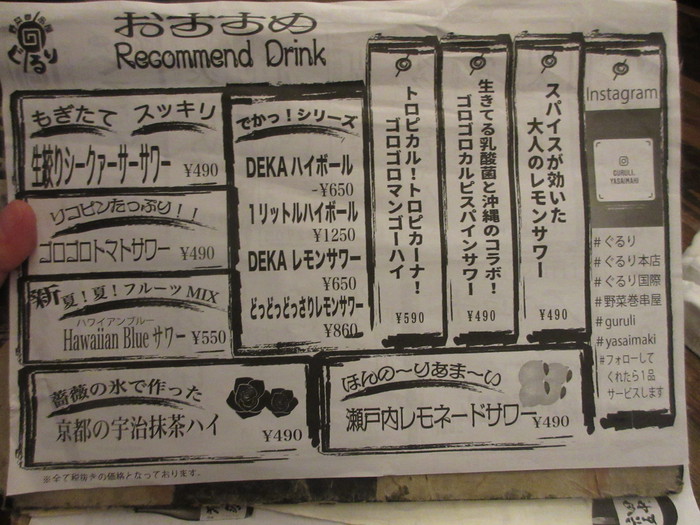 ぐるり
おすすめ
Recommend Drink
もぎたて スッキリ
生絞りシークァーサーサワー ¥490
リコピンたっぷり！！
ゴロゴロトマトサワー ¥490
新 夏！夏！フルーツMIX
ハワイアンブルー
Hawaiian Blue サワー ¥550
でかっ！シリーズ
DEKA ハイボール
-¥650
1リットルハイボール
¥1250
DEKA レモンサワー
¥650
どっどっどっさりレモンサワー
¥860
トロピカル！トロピカーナ！
ゴロゴロマンゴーハイ
¥590
生きてる乳酸菌と沖縄のコラボ！
ゴロゴロカルピスパインサワー
¥490
スパイスが効いた
大人のレモンサワー
¥490
Instagram
GURULI.
YASAIMAKI
#ぐるり
#ぐるり本店
#ぐるり国際
#野菜巻串屋
#guruli
#yasaimaki
#フォローして
くれたら1品
サービスします
薔薇の氷で作った
京都の宇治抹茶ハイ
¥490
ほんの〜りあま〜い
瀬戸内レモネードサワー
¥490
※全て税抜きの価格となっております。